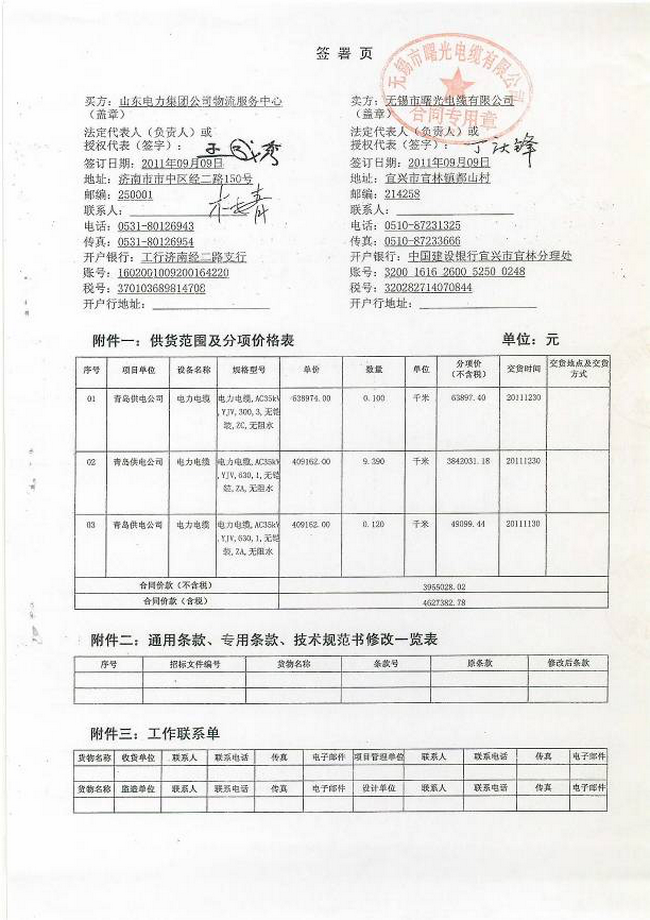 签署页
无锡市曙光电缆有限公司
合同专用章
买方：山东电力集团公司物流服务中心
（盖章）
法定代表人（负责人）或
授权代表（签字）：
签订日期：2011年09月09日
地址：济南市市中区经二路150号
邮编：250001
联系人：
电话：0531-80126943
传真：0531-80126954
开户银行：工行济南经二路支行
账号：1602001009200164220
税号：370103689814708
开户行地址：
卖方：无锡市曙光电缆有限公司
（盖章）
法定代表人（负责人）或
授权代表（签字）：
签订日期：2011年09月09日
地址：宜兴市官林镇都山村
邮编：214258
联系人：
电话：0510-87231325
传真：0510-87233666
开户银行：中国建设银行宜兴市官林分理处
账号：3200 1616 2600 5250 0248
税号：320282714070844
开户行地址：
附件一：供货范围及分项价格表 单位：元
序号 项目单位 设备名称 规格型号 单价 数量 单位 分项价（不含税） 交货时间 交货地点及交货方式
01 青岛供电公司 电力电缆 电力电缆,AC35kV,YJV,300,3,无铠装,ZC,无阻水 638974.00 0.100 千米 63897.40 20111230
02 青岛供电公司 电力电缆 电力电缆,AC35kV,YJV,630,1,无铠装,ZA,无阻水 409162.00 9.390 千米 3842031.18 20111230
03 青岛供电公司 电力电缆 电力电缆,AC35kV,YJV,630,1,无铠装,ZA,无阻水 409162.00 0.120 千米 49099.44 20111130
合同价款（不含税） 3955028.02
合同价款（含税） 4627382.78
附件二：通用条款、专用条款、技术规范书修改一览表
序号 招标文件编号 货物名称 条款号 原条款 修改后条款
附件三：工作联系单
货物名称 收货单位 联系人 联系电话 传真 电子邮件 项目管理单位 联系人 联系电话 传真 电子邮件
货物名称 监造单位 联系人 联系电话 传真 电子邮件 设计单位 联系人 联系电话 传真 电子邮件